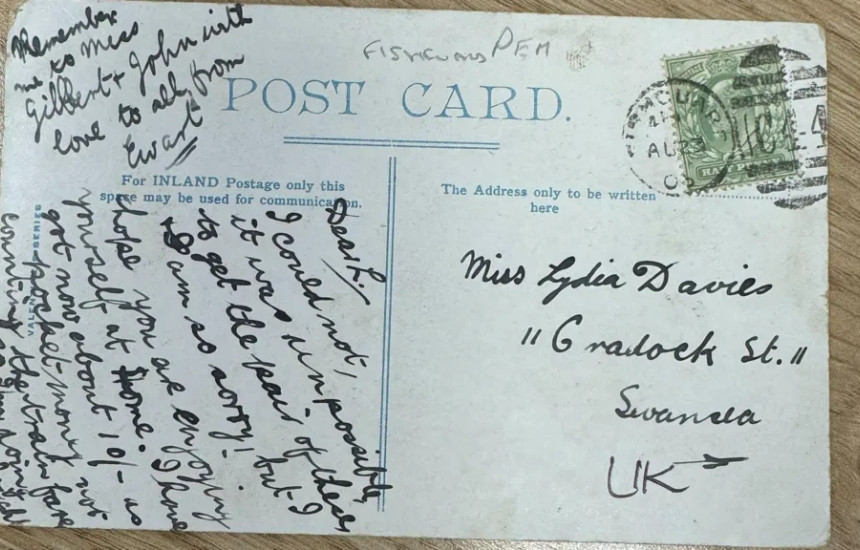 Remember
me to Miss
Gilbert + John with
love to all from
Ewart
FISHGUARD PEM
POST CARD.
For INLAND Postage only this
space may be used for communication.
The Address only to be written
here
AU 23
HALF
Dear L.
I could not,
it was unpossible,
to get the pair of these
I am so sorry! but I
hope you are enjoying
yourself at home. I have
got now about 10/- as
pocket money not
counting the train fare
SERIES
Miss Lydia Davies
11 Cradock St.
Swansea
UK